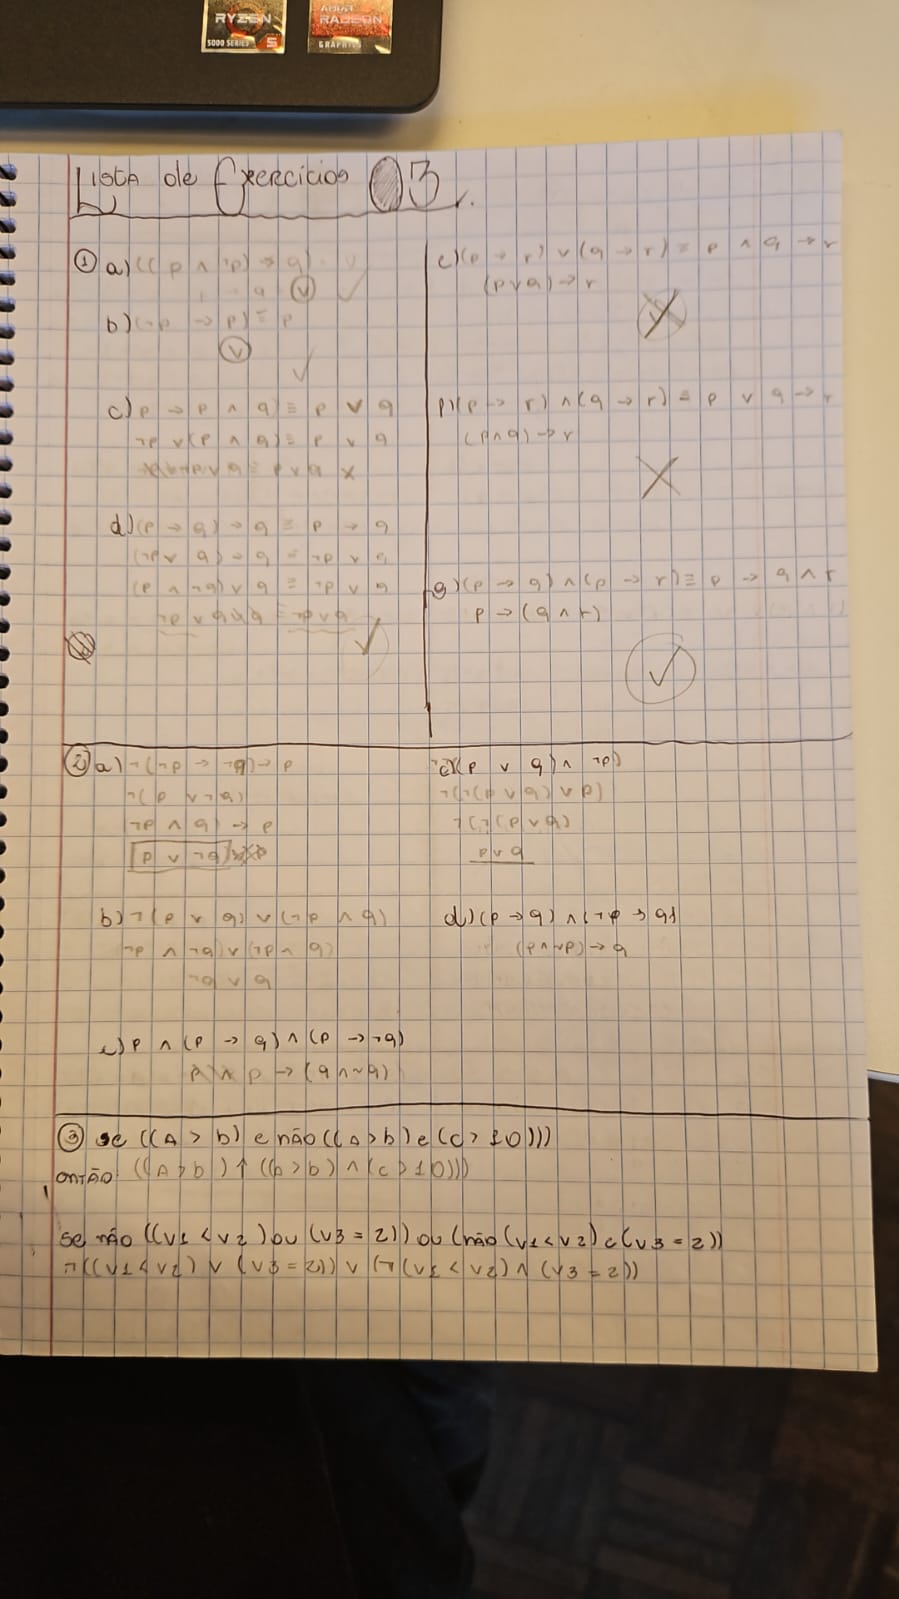 RYZEN
5000 SERIES 5
RADEON
GRAPHICS
Lista de Exercícios 03
① a) ((p ∧ ¬p) → q)
q (V)
b) (¬p → p) ≡ p
(V)
c) p → p ∧ q ≡ p ∨ q
¬p ∨ (p ∧ q) ≡ p ∨ q
p ∨ q ≡ p ∨ q x
d) (p → q) → q ≡ p → q
(¬p ∨ q) → q ≡ ¬p ∨ q
(p ∧ ¬q) ∨ q ≡ ¬p ∨ q
≡ ¬p ∨ q
e) (p → r) ∨ (q → r) ≡ p ∧ q → r
(p ∨ q) → r
f) (p → r) ∧ (q → r) ≡ p ∨ q → r
(p ∧ q) → r
g) (p → q) ∧ (p → r) ≡ p → q ∧ r
p → (q ∧ r)
② a) ¬(¬p → ¬q) → p
¬(p ∨ ¬q)
¬p ∧ q) → p
p ∨ ¬q
b) ¬(p ∨ q) ∨ (¬p ∧ q)
¬p ∧ ¬q) ∨ (¬p ∧ q)
¬q ∨ q
c) p ∧ (p → q) ∧ (p → ¬q)
p → (q ∧ ~q)
(p ∨ q) ∧ ¬p)
¬(¬(p ∨ q) ∨ p)
¬(¬(p ∨ q)
p ∨ q
d) (p → q) ∧ (¬p → q)
(p ∧ ~p) → q
③ se ((A > b) e não ((A > b) e (c > 10)))
então ((A > b) ↑ ((b > b) ∧ (c > 10)))
se não ((v1 < v2) ou (v3 = 2)) ou (não (v1 < v2) e (v3 = 2))
¬((v1 < v2) ∨ (v3 = 2)) ∨ (¬(v1 < v2) ∧ (v3 = 2))